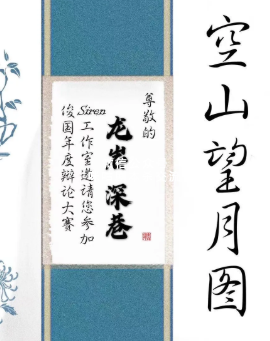 空山望月图
尊敬的
龙 深巷
Siren工作室邀请您参加
俊国年度辩论大赛